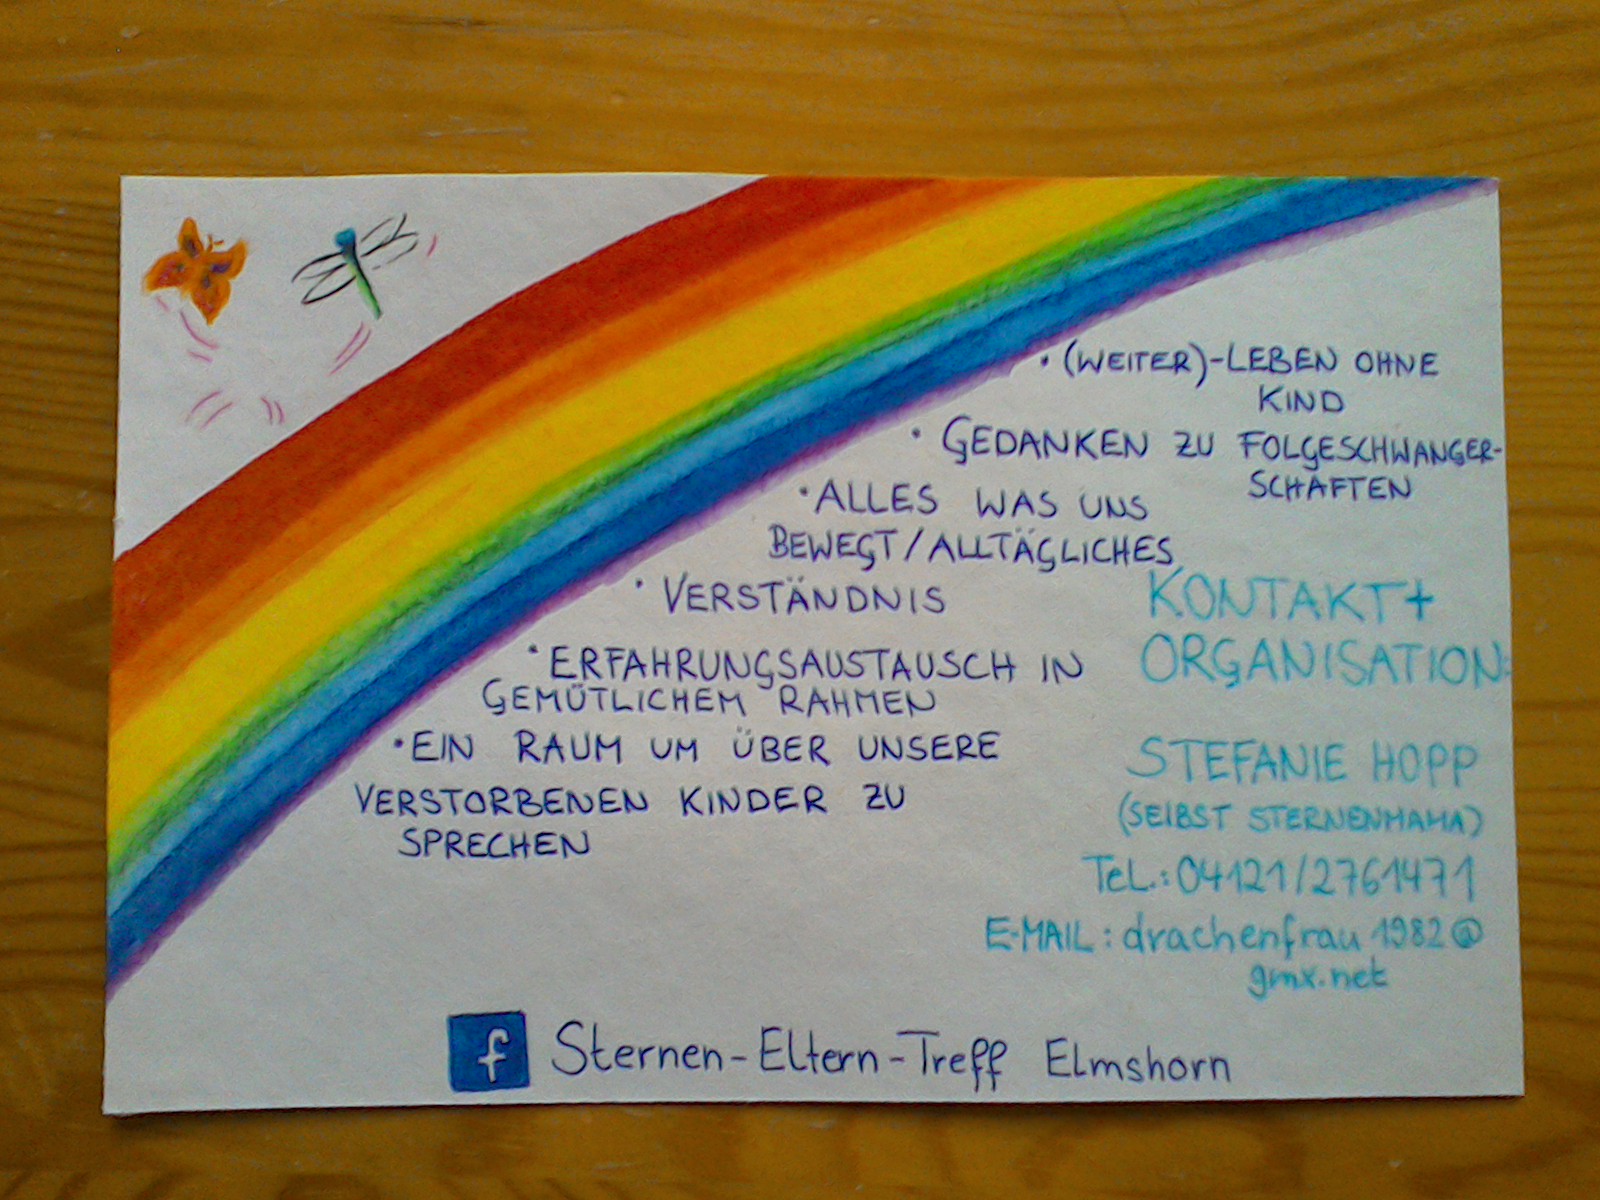 • (WEITER)-LEBEN OHNE
KIND
• GEDANKEN ZU FOLGESCHWANGER-
SCHAFTEN
• ALLES WAS UNS
BEWEGT/ALLTÄGLICHES
• VERSTÄNDNIS
• ERFAHRUNGSAUSTAUSCH IN
GEMÜTLICHEM RAHMEN
• EIN RAUM UM ÜBER UNSERE
VERSTORBENEN KINDER ZU
SPRECHEN
KONTAKT+
ORGANISATION:
STEFANIE HOPP
(SELBST STERNENMAMA)
TEL.: 04121/2761471
E-MAIL: drachenfrau1982@
gmx.net
f Sternen-Eltern-Treff Elmshorn